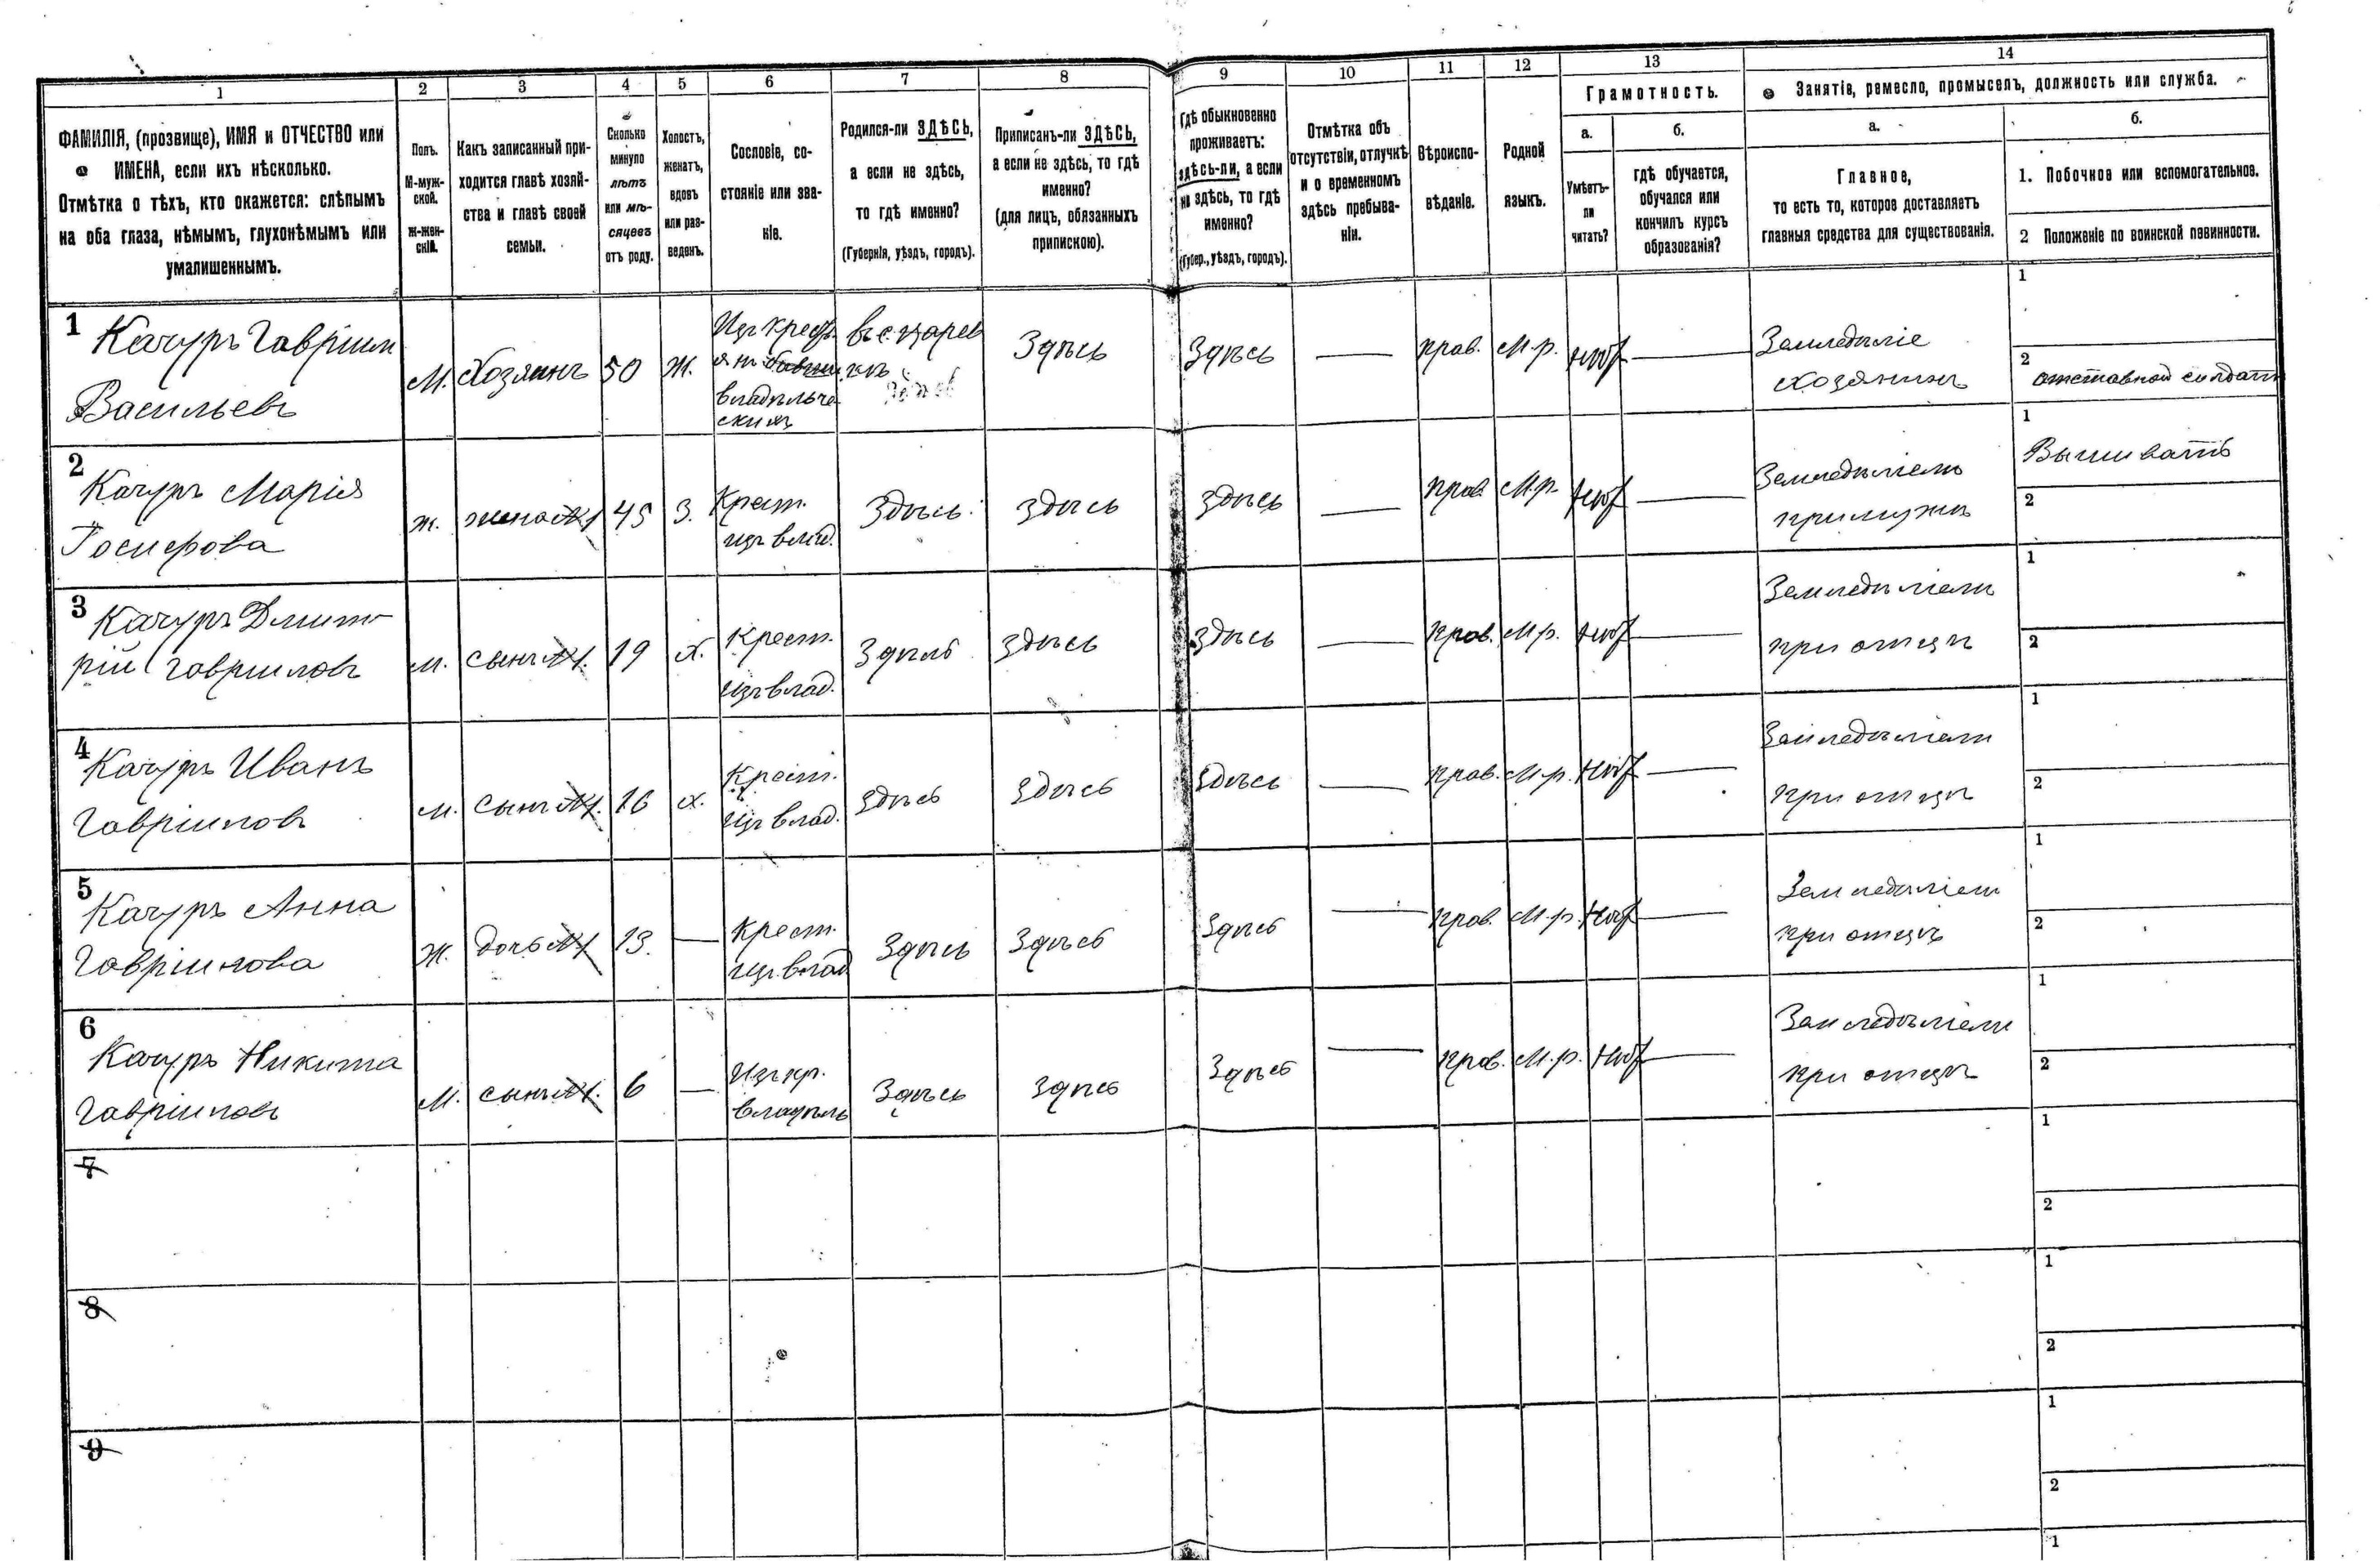 1 2 3 4 5 6 7 8 9 10 11 12 13 14
ФАМИЛІЯ, (прозвище), ИМЯ и ОТЧЕСТВО или
ИМЕНА, если ихъ нѣсколько.
Отмѣтка о тѣхъ, кто окажется: слѣпымъ
на оба глаза, нѣмымъ, глухонѣмымъ или
умалишеннымъ.
Полъ.
М-муж-
ской.
Ж-жен-
скій.
Какъ записанный при-
ходится главѣ хозяй-
ства и главѣ своей
семьи.
Сколько
минуло
лѣтъ
или мѣ-
сяцевъ
отъ роду.
Холостъ,
женатъ,
вдовъ
или раз-
веденъ.
Сословіе, со-
стояніе или зва-
ніе.
Родился-ли ЗДѢСЬ,
а если не здѣсь,
то гдѣ именно?
(Губернія, уѣздъ, городъ).
Приписанъ-ли ЗДѢСЬ,
а если не здѣсь, то гдѣ
именно?
(для лицъ, обязанныхъ
припискою).
Гдѣ обыкновенно
проживаетъ:
здѣсь-ли, а если
не здѣсь, то гдѣ
именно?
(Губер., уѣздъ, городъ).
Отмѣтка объ
отсутствіи, отлучкѣ
и о временномъ
здѣсь пребыва-
ніи.
Вѣроиспо-
вѣданіе.
Родной
языкъ.
Грамотность.
а.
Умѣетъ-
ли
читать?
б.
гдѣ обучается,
обучался или
кончилъ курсъ
образованія?
Занятіе, ремесло, промыселъ, должность или служба.
а.
Главное,
то есть то, которое доставляетъ
главныя средства для существованія.
б.
1. Побочное или вспомогательное.
2 Положеніе по воинской повинности.
1 Качуръ Гавріилъ
Васильевъ
М. Хозяинъ 50 Ж.
Изъ крест
янъ
владѣльче
скихъ
въ с.
Здѣсь Здѣсь — прав. М.р. нѣт —
Земледѣліе
хозяинъ
1
2 отставной солдатъ
2 Качуръ Марія
Іосифова
ж. жена №1 45 З.
Крест.
изъ влад.
Здѣсь Здѣсь Здѣсь — прав. М.р. нѣт —
Земледѣліемъ
при мужѣ
1 Вышиватъ
2
3 Качуръ Дмит
рій Гавриловъ
м. сынъ №1. 19 х.
Крест.
изъ влад.
Здѣсь Здѣсь Здѣсь — прав. М.р. нѣт —
Земледѣліемъ
при отцѣ
1
2
4 Качуръ Иванъ
Гавріиловъ
м. сынъ №1. 16 х.
Крест.
изъ влад.
Здѣсь Здѣсь Здѣсь — прав. М.р. нѣт —
Земледѣліемъ
при отцѣ
1
2
5 Качуръ Анна
Гавріилова
Ж. дочь №1 13. —
Крест.
изъ влад
Здѣсь Здѣсь Здѣсь — прав. М.р. нѣт —
Земледѣліемъ
при отцѣ
1
2
6 Качуръ Никита
Гавріиловъ
М. сынъ №1. 6 —
Изъ кр.
владѣль
Здѣсь Здѣсь Здѣсь — прав. М.р. нѣт —
Земледѣліемъ
при отцѣ
1
2
7
1
2
8
1
2
9
1
2
1